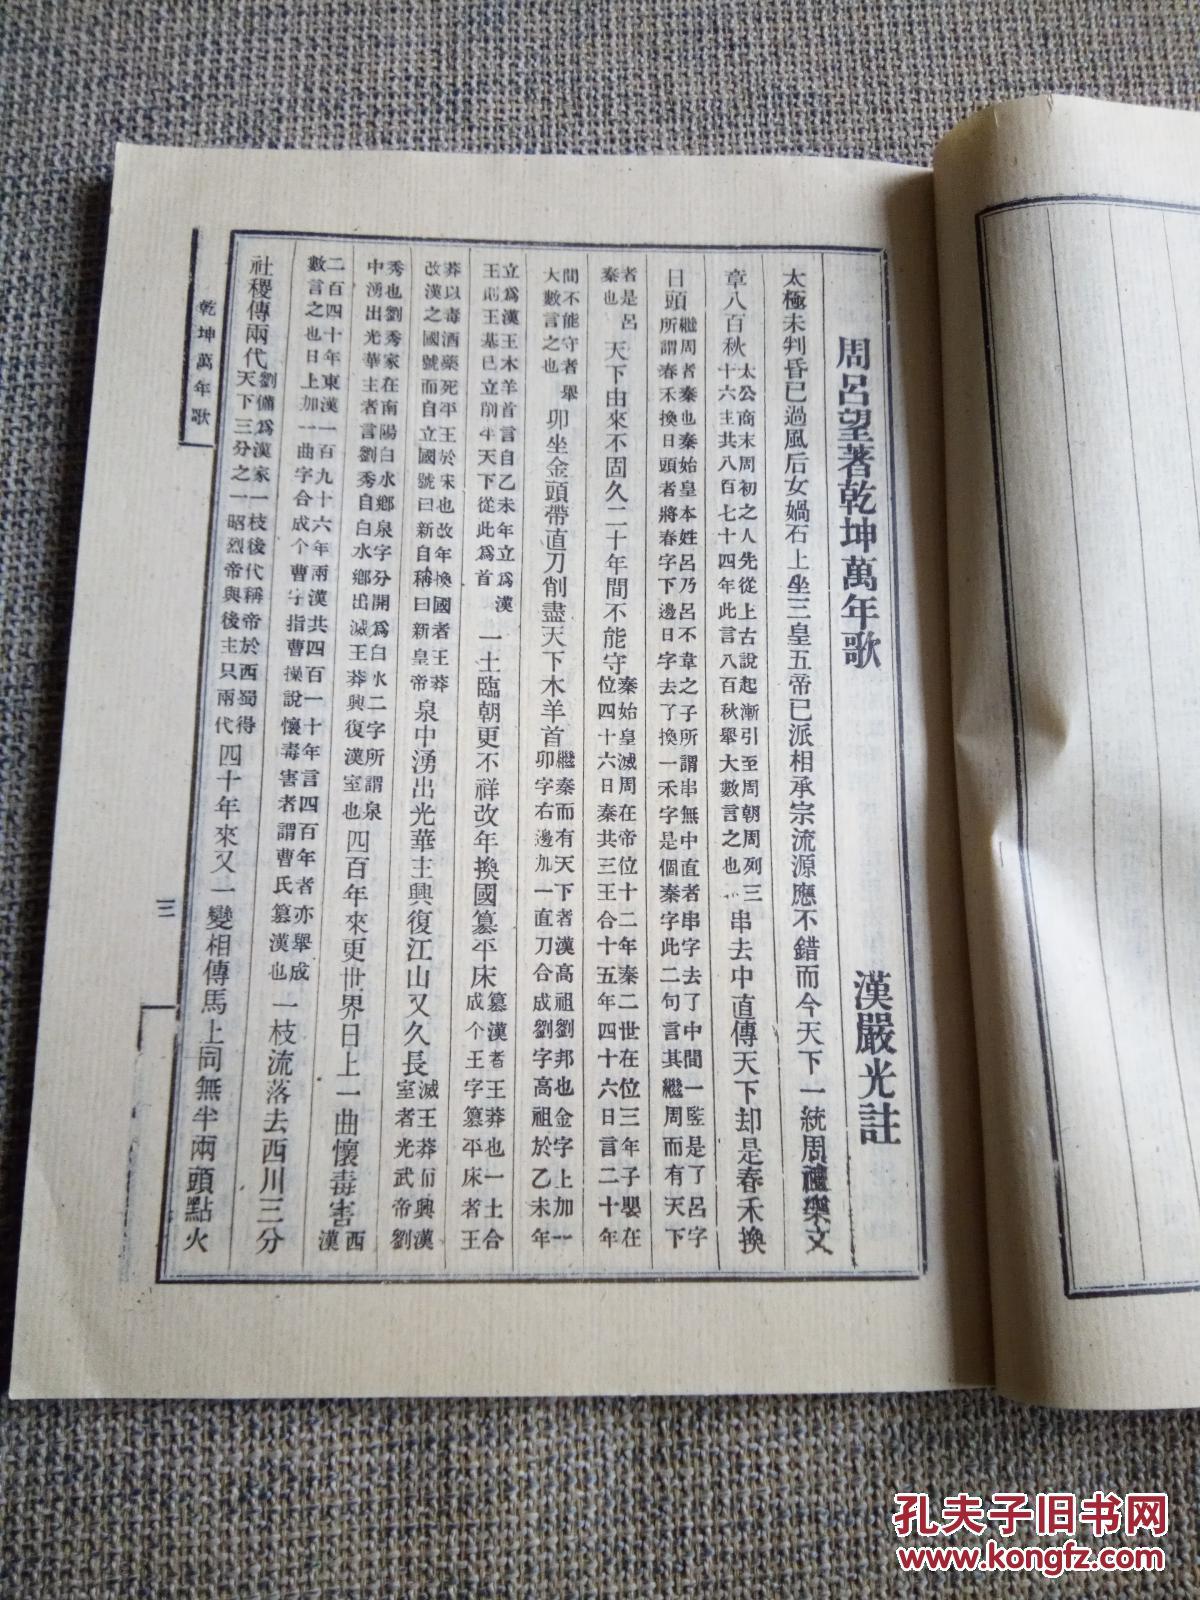 周呂望著乾坤萬年歌 漢嚴光註
太極未判昏已過風后女媧石上坐三皇五帝已派相承宗流源應不錯而今天下一統周禮樂文
章八百秋太公商末周初之人先從上古說起漸引至周朝周列三十六主共八百七十四年此言八百秋舉大數言之也串去中直傳天下却是春禾換
日頭繼周者秦也秦始皇本姓呂乃呂不韋之子所謂串無中直者串字去了中間一竪是了呂字所謂春禾換日頭者將春字下邊日字去了換一禾字是個秦字此二句言其繼周而有天下
者是呂秦也天下由來不固久二十年間不能守秦始皇滅周在帝位十二年秦二世在位三年子嬰在位四十六日秦共三王合十五年四十六日言二十年
間不能守者舉大數言之也卯坐金頭帶直刀削盡天下木羊首繼秦而有天下者漢高祖劉邦也金字上加一卯字右邊加一直刀合成劉字高祖於乙未年
立為漢王木羊首言自乙未年立為漢王則王基已立削平天下從此為首一土臨朝更不祥改年換國篡平床篡漢者王莽也一土合成个王字篡平床者王
莽以毒酒藥死平王於宋也改年換國者王莽改漢之國號而自立國號曰新自稱曰新皇帝泉中湧出光華主興復江山又久長滅王莽而興漢室者光武帝劉
秀也劉秀家在南陽白水鄉泉字分開為白水二字所謂泉中湧出光華主者言劉秀自白水鄉出滅王莽興復漢室也四百年來更世界日上一曲懷毒害西漢
二百四十年東漢一百九十六年兩漢共四百一十年言四百年者亦舉成數言之也日上加一曲字合成个曹字指曹操說懷毒害者謂曹氏篡漢也一枝流落去西川三分
社稷傳兩代劉備為漢家一枝後代稱帝於西蜀得天下三分之一昭烈帝與後主只兩代四十年來又一變相傳馬上同無半兩頭點火
乾坤萬年歌
三
孔夫子旧书网
www.kongfz.com